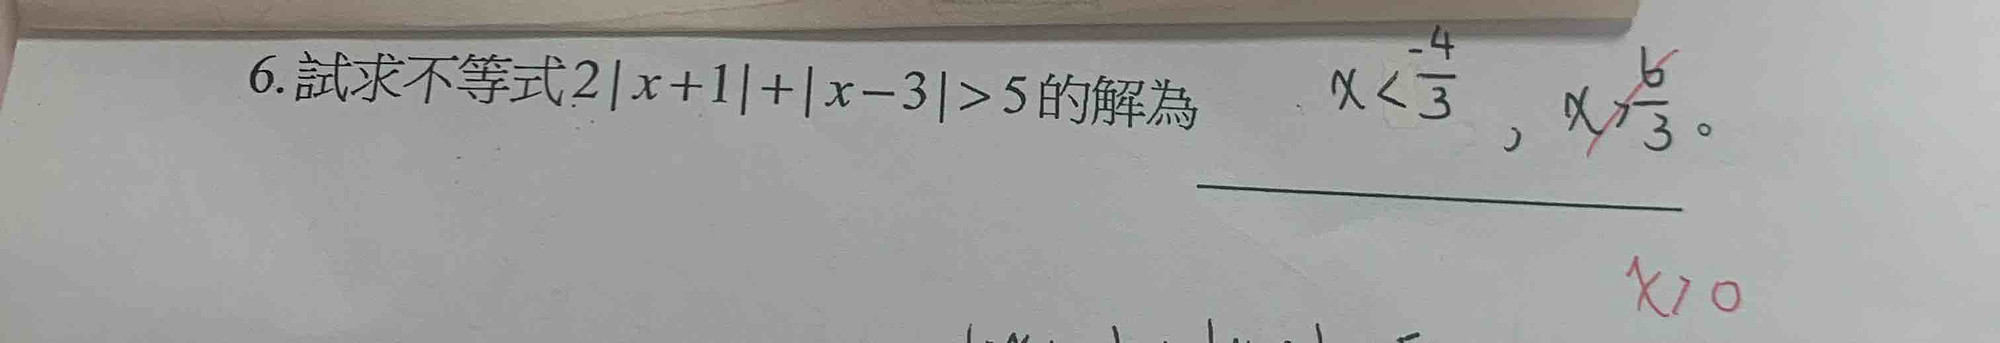 6.試求不等式2|x+1|+|x-3|>5的解為 x<-4/3，x>6/3。
x>0